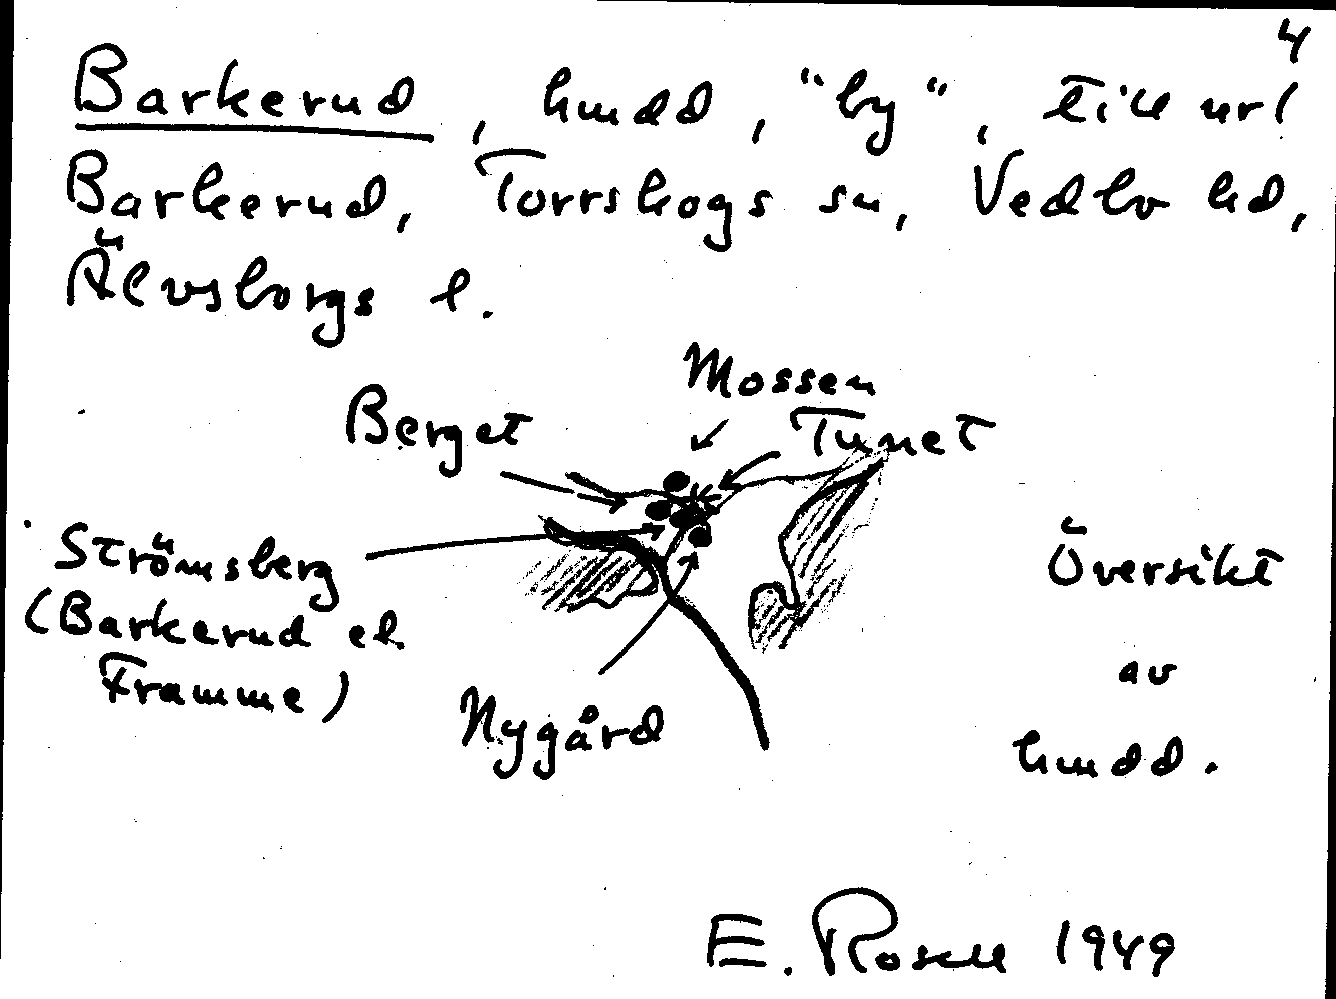 4
Barkerud, hmdd, "by", till url
Barkerud, Torrskogs sn, Vedbo hd,
Älvsborgs l.
Mossen
Berget Tunet
Strömsberg
(Barkerud el.
Framme)
Nygård
Översikt
av
hmdd.
E. Rosell 1949